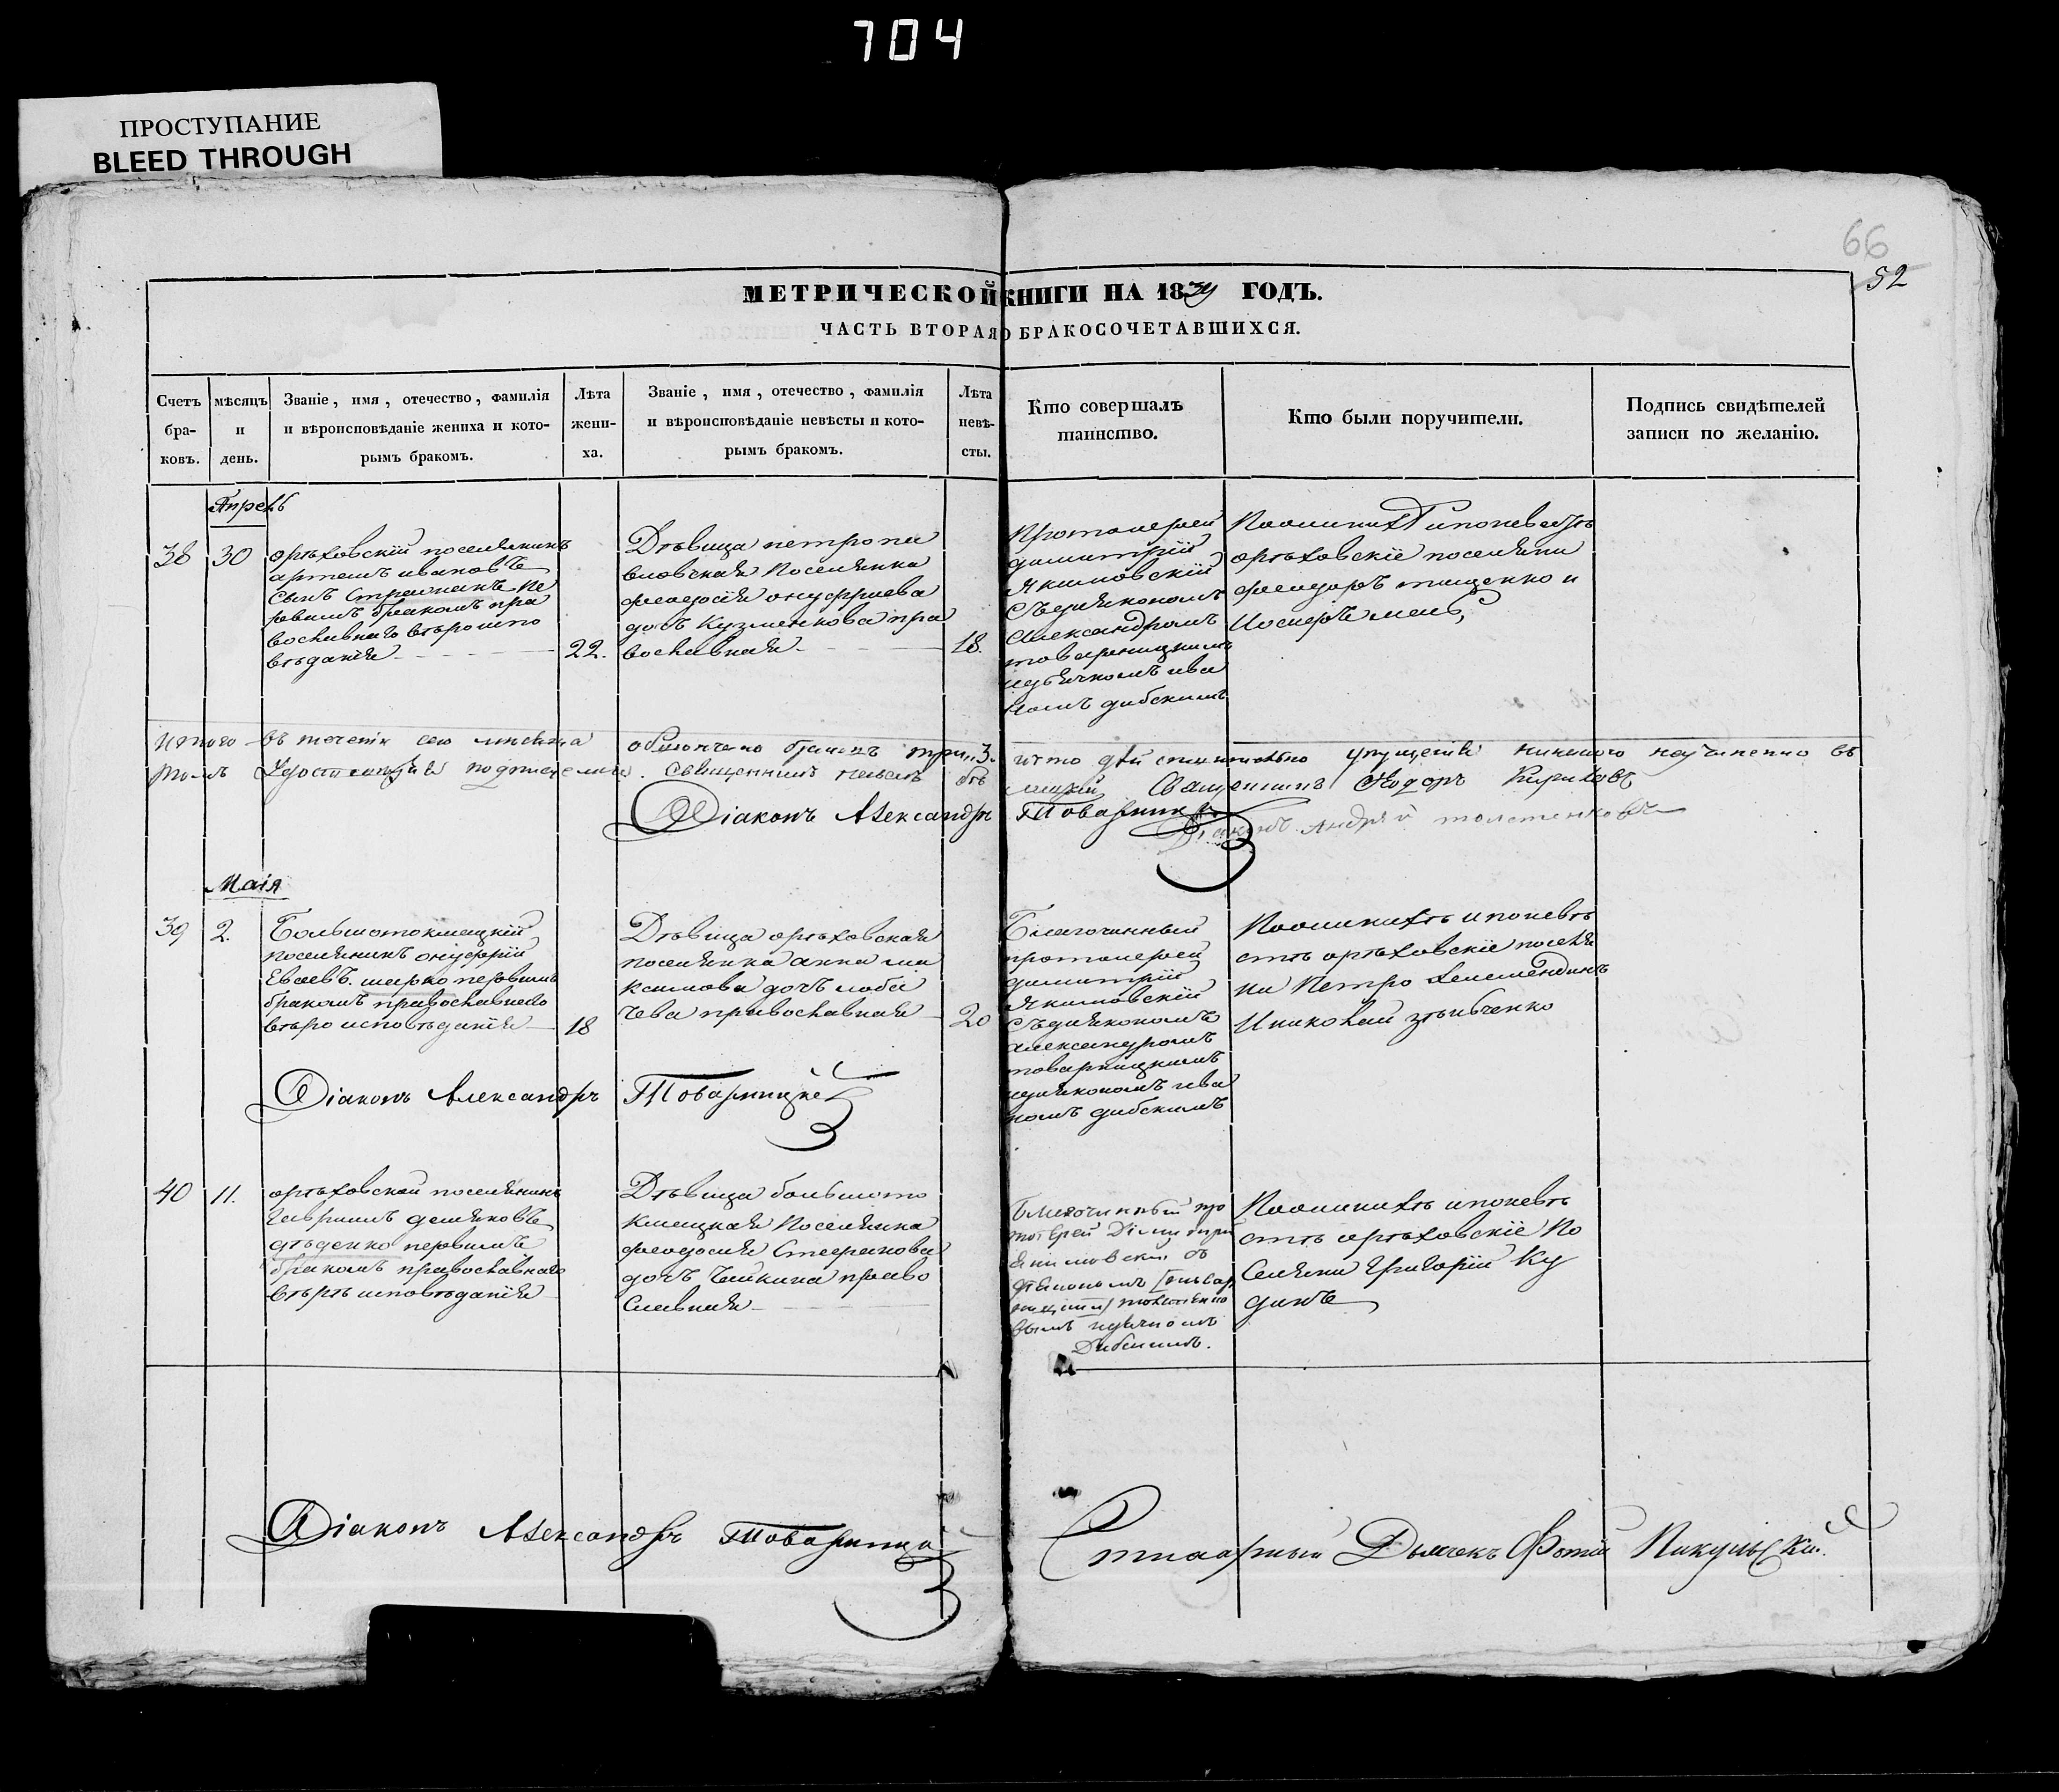 704
ПРОСТУПАНИЕ
BLEED THROUGH
66
52
МЕТРИЧЕСКОЙ КНИГИ НА 1839 ГОДЪ.
ЧАСТЬ ВТОРАЯ О БРАКОСОЧЕТАВШИХСЯ.
Счетъ бра-
ковъ.
мѣсяцъ
и
день.
Званіе, имя, отечество, фамилія
и вѣроисповѣданіе жениха и кото-
рымъ бракомъ.
Лѣта
жени-
ха.
Званіе, имя, отечество, фамилія
и вѣроисповѣданіе невѣсты и кото-
рымъ бракомъ.
Лѣта
невѣ-
сты.
Кто совершалъ
таинство.
Кто были поручители.
Подпись свидѣтелей
записи по желанію.
Апрель
38
30
орѣховскій поселянинъ
артемъ ивановъ
сынъ пе
рвымъ бракомъ пра
вославнаго вѣроиспо
вѣданія
22.
Дѣвица петропа
вловская поселянка
феодосія онуфриева
дочь Кузменкова пра
вославная
18.
Протоиерей
димитрій
Якимовскій
Съ диякономъ
Александромъ
товарницкимъ
идьячкомъ ива
номъ дибскимъ
орѣховскіе поселяни
феодоръ тищенко и
Итого въ теченіи сего месяца
браковъ три..3.
что действительно упущенія никакого неучиненно въ
томъ подписуемся. Священникъ
Священникъ Феодоръ
Діаконъ Александръ Товарницкій
андрей толстенковъ
Маія
39
2.
Большотокмацкій
поселянинъ онуфрій
первымъ
бракомъ православнаго
вѣроисповѣданія
18
Дѣвица орѣховская
поселянка анна ма
ксимова дочь лоба
чева православная
20
Благочинный
протоиерей
димитрій
Якимовскій
Съ диякономъ
александромъ
товарницкимъ
идиякономъ ива
номъ дибскимъ
По жинихѣ и поневѣ
стѣ орѣховскіе поселя
ни Петро
Иниколай
Діаконъ Александръ Товарницкій
40
11.
орѣховской поселянинъ
Гавриилъ демяновъ
дѣденко первымъ
бракомъ православнаго
вѣрѣ исповѣданія
Дѣвица большото
кмацкая Поселянка
феодосия Стефанова
дочь Чайкина право
славная
Благочинный про
тоіерей Димитрій
Якимовскій съ
Дибскимъ.
По жинихѣ и поневѣ
стѣ орѣховскіе По
селяни Григорій Ку
динъ
Діаконъ Александръ Товарницкій
Дьячекъ Фотій Пикульскій.